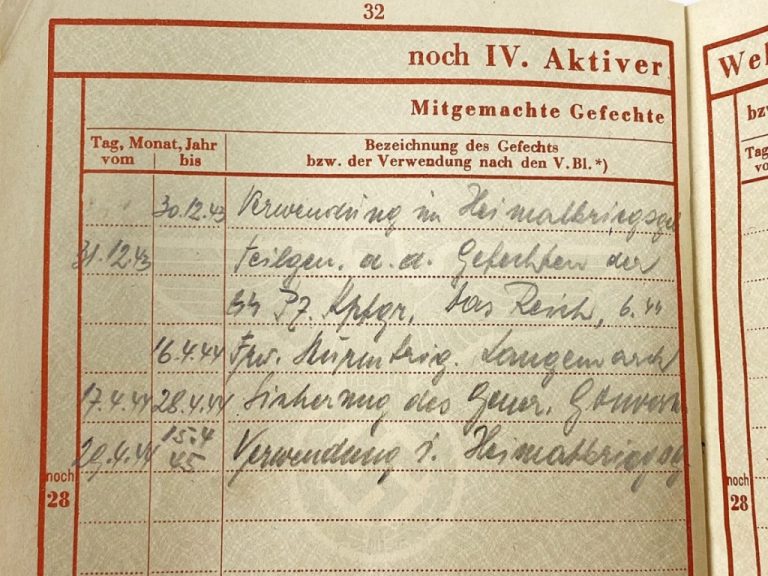 32
noch IV. Aktiver
Wel
Mitgemachte Gefechte
bz
Tag, Monat, Jahr
vom bis
Bezeichnung des Gefechts
bzw. der Verwendung nach den V.Bl.*)
Tag
vo
30.12.43 Verwendung im Heimatkriegsgeb
31.12.43 Teilgen. a. d. Gefechten der
SS Pz. Kpfgr. Das Reich, 6. SS
16.4.44 Frw. Sturmbrig. Langemarck
17.4.44 28.4.44 Sicherung des Gener. Gouvern
29.4.44 15.4.45 Verwendung i. Heimatkriegsg
noch
28
noch
28